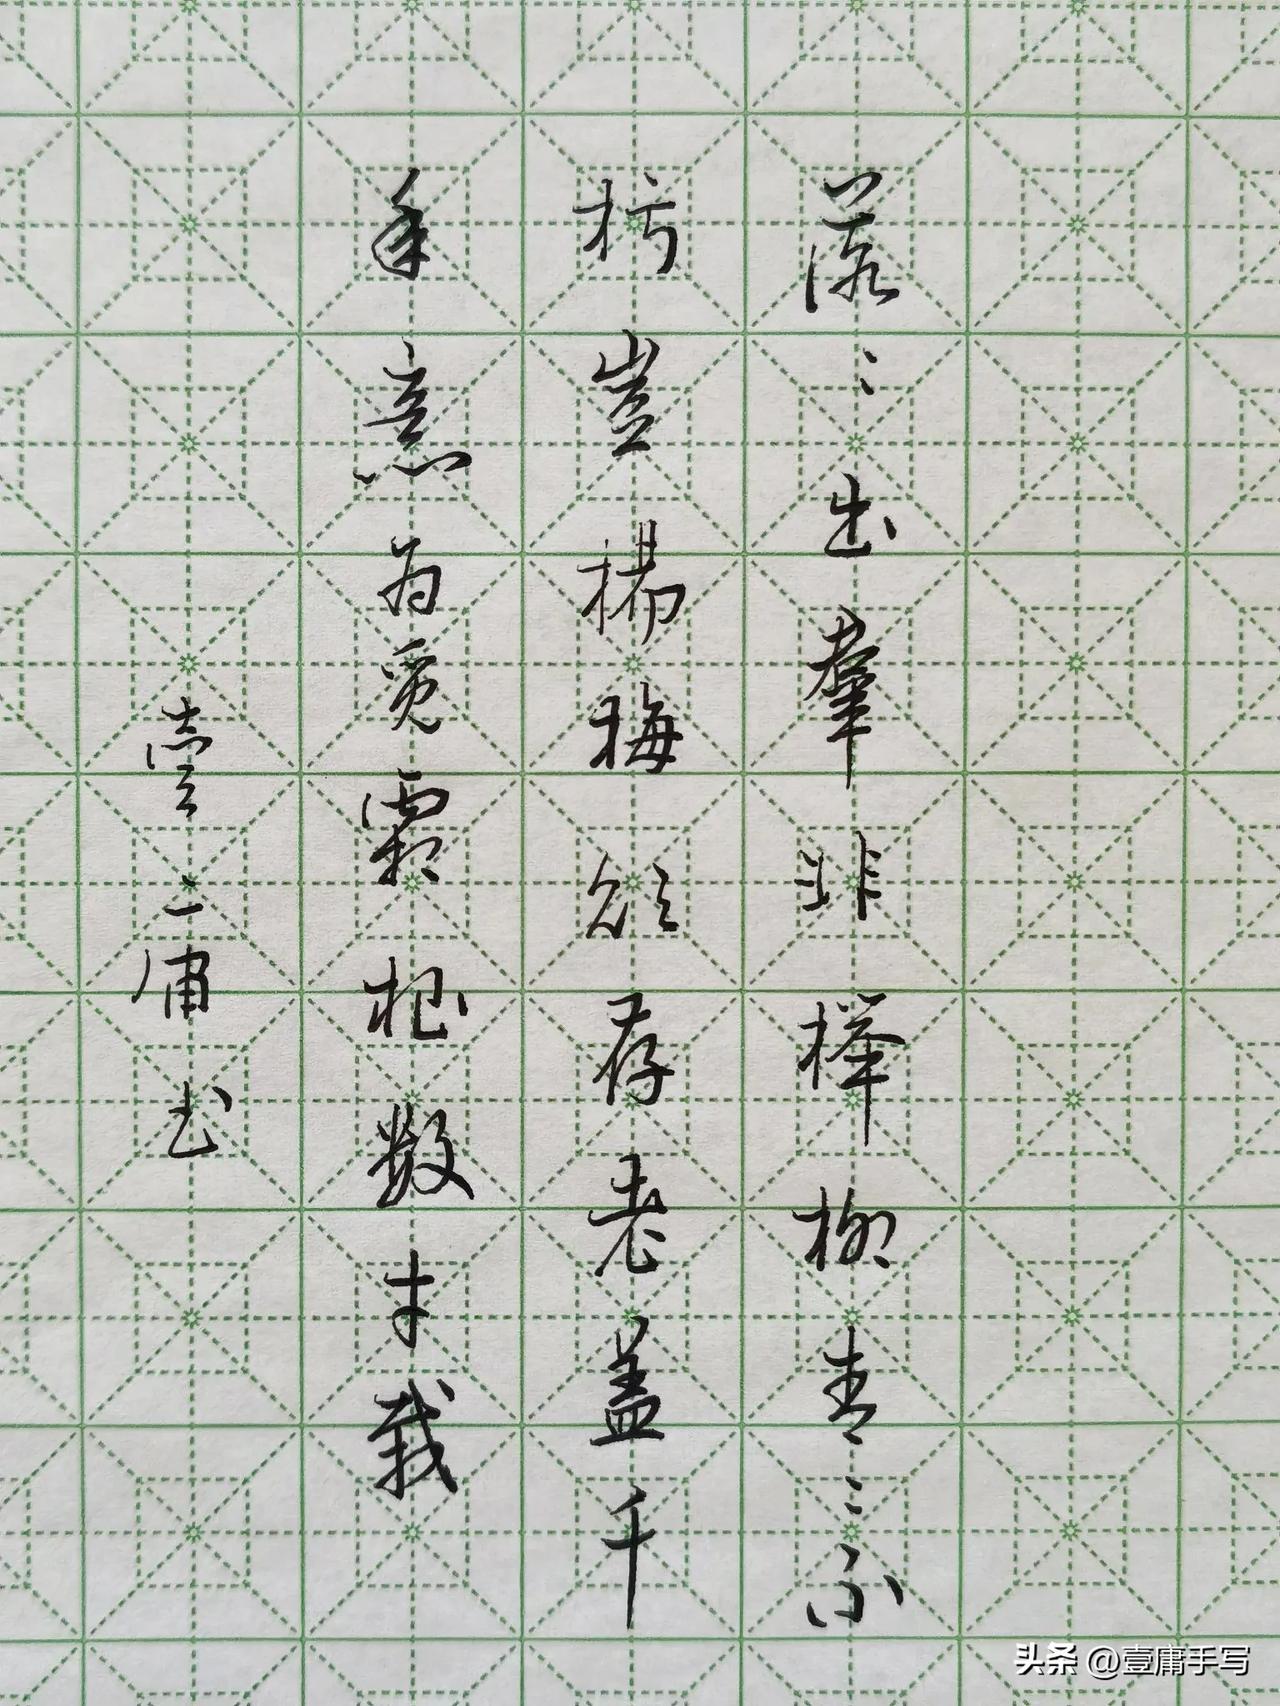 落〻出羣非榉柳青〻不
朽豈杨梅欲存老盖千
年意为觅霜根数寸栽
壹庸书
头条 @壹庸手写